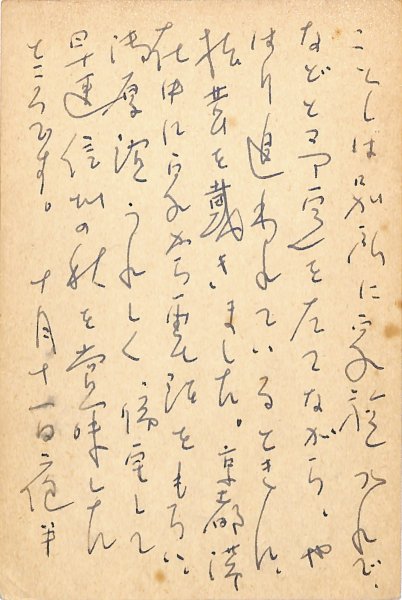 ことしは に家族づれで、
などと予定を立てながら、や
はり追われているときに、
を戴きました。京都滞
在中に家から電話をもらい
御厚誼うれしく、帰宅して
早速信州の秋を賞味した
ところです。十月十一日夜半